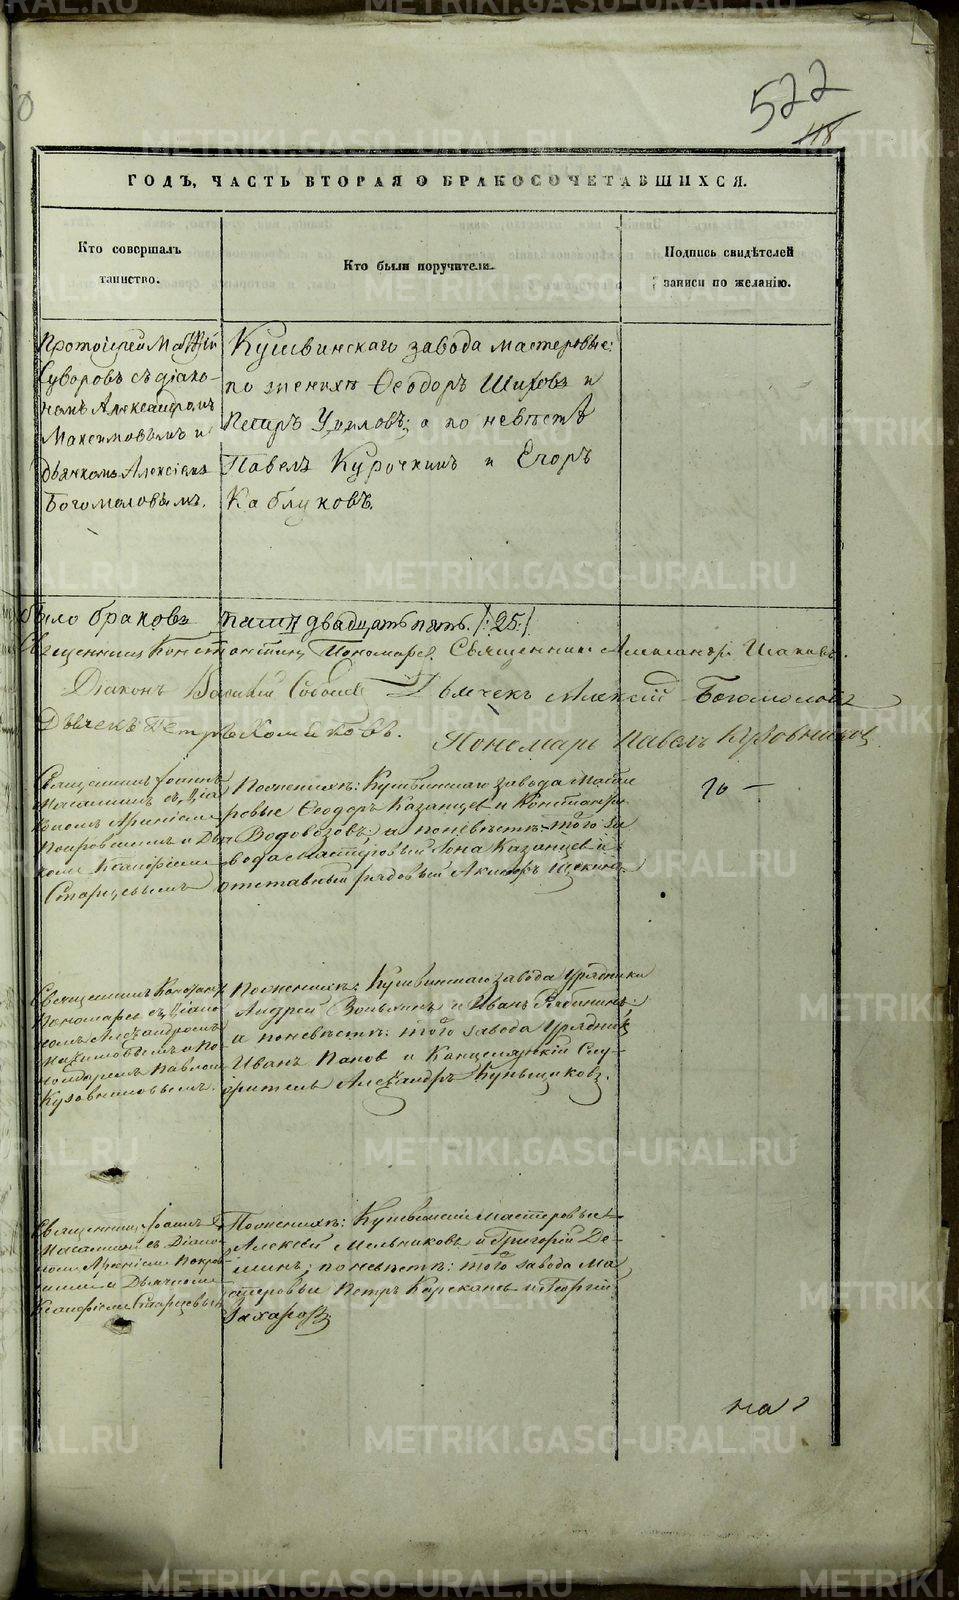 522
118
ГОДЪ, ЧАСТЬ ВТОРАЯ О БРАКОСОЧЕТАВШИХСЯ.
Кто совершалъ
таинство.
Кто были поручители.
Подпись свидѣтелей
записи по желанію.
Протоіерей Матѳій
Суворовъ съ діако-
номъ Александромъ
Максимовымъ и
дьячкомъ Алексіемъ
Богомоловымъ.
Кушвинскаго завода мастеровые:
по женихѣ Ѳеодоръ Шиховъ и
Петръ; а по невѣстѣ
Павелъ Курочкинъ и Егоръ
Каблуковъ.
было браковъ двадцать пять /:25:/
Священникъ Константинъ Пономаревъ. Священникъ Александръ
Діаконъ Василій Дьячекъ Алексій Богомоловъ
Дьячекъ Петръ Хомяковъ.
Пономарь Павелъ Кузовниковъ
Священникъ Іоаннъ
съ Діа-
кономъ Арсеніемъ
Покровскимъ и Дья
комъ Ксанфіемъ
Старцевымъ
По женихѣ: Кушвинскаго завода Масте
ровые Ѳеодоръ Казанцевъ и Константи
Водовозовъ; а по невѣстѣ: того за
вода мастеровый Іона Казанцевъ и
отставный рядовый
Священникъ Констант
Пономаревъ съ Діако
номъ Александромъ
Максимовымъ и По
номаремъ Павломъ
Кузовниковымъ.
По женихѣ: Кушвинскаго завода Урядники
Андрей и Иванъ Рябининъ;
а по невѣстѣ: того завода Урядникъ
Иванъ Поповъ и Канцелярскій Слу-
житель Александръ Куньщиковъ.
Священникъ Іоаннъ
съ Діако
номъ Арсеніемъ Покров
скимъ и Дьячкомъ
Ксанфіемъ Старцевым
По женихѣ: Кушвинскіе мастеровые
Алексѣй Мельниковъ и Григорій Де-
минъ; по невѣстѣ: того завода Ма
стеровые Петръ и Георгій
Захаровъ.
METRIKI.GASO-URAL.RU